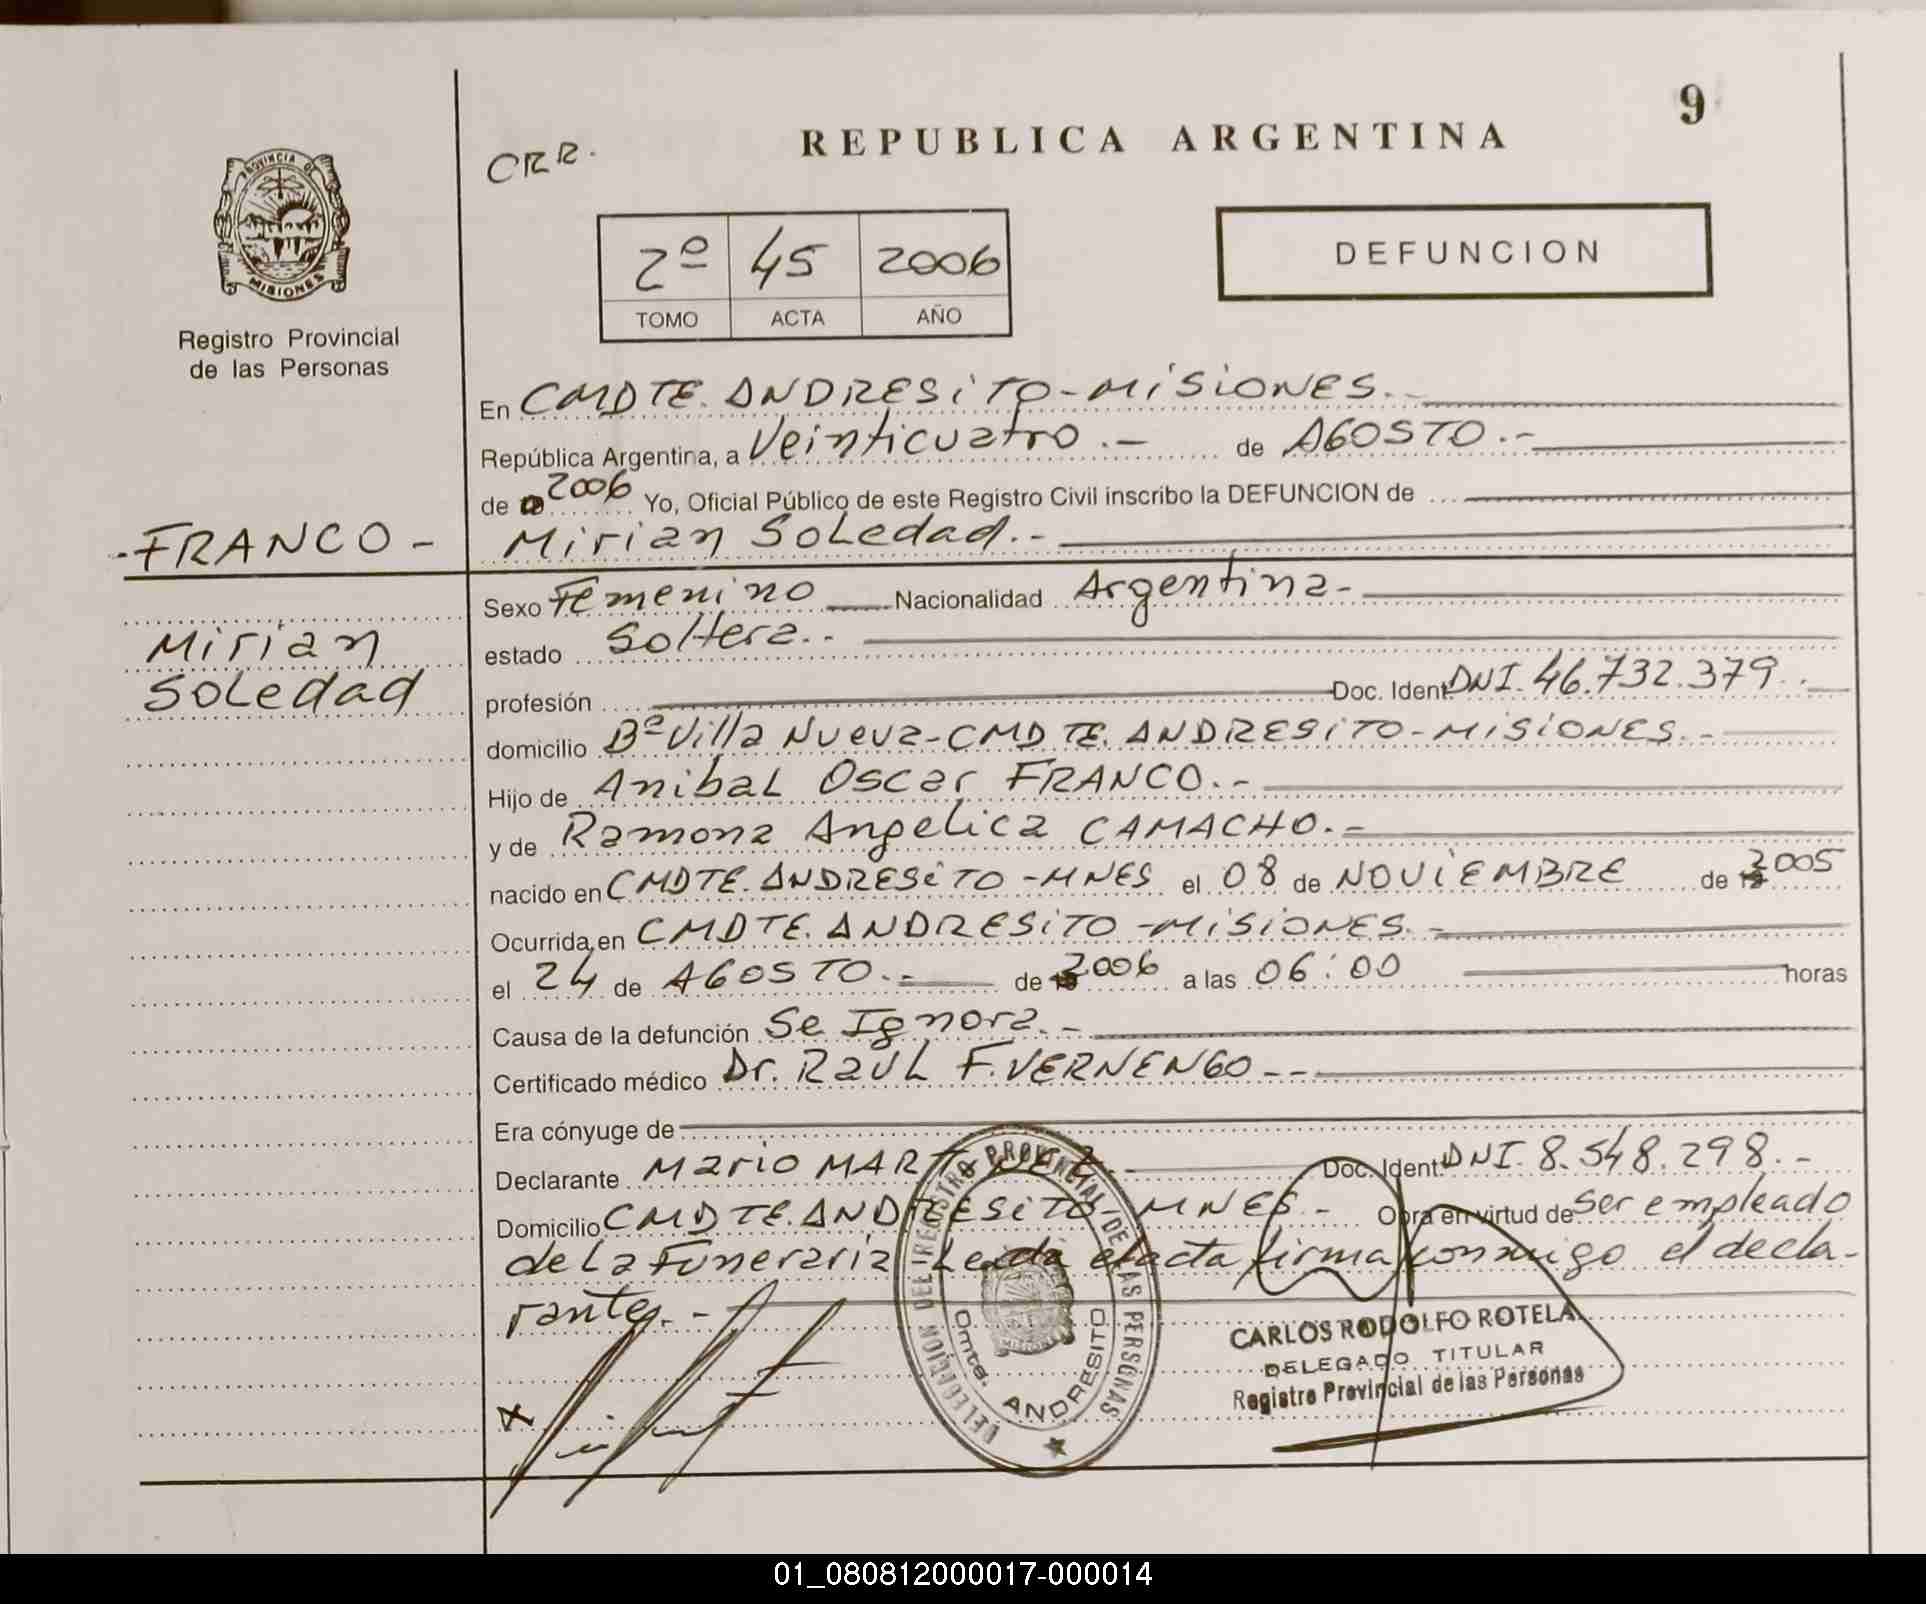 9
REPUBLICA ARGENTINA
CRR.
PROVINCIA DE
MISIONES
Registro Provincial
de las Personas
2º 45 2006
TOMO ACTA AÑO
DEFUNCION
En CMDTE. ANDRESITO-MISIONES.-
República Argentina, a Veinticuatro.- de AGOSTO.-
de 2006 Yo, Oficial Público de este Registro Civil inscribo la DEFUNCION de
-FRANCO- Mirian Soledad.-
Mirian
Soledad
Sexo Femenino Nacionalidad Argentina-
estado Soltera.-
profesión Doc. Ident. DNI. 46.732.379.-
domicilio Bº Villa Nueva-CMDTE. ANDRESITO-MISIONES.-
Hijo de Anibal Oscar FRANCO.-
y de Ramona Angelica CAMACHO.-
nacido en CMDTE. ANDRESITO-MNES el 08 de NOVIEMBRE de 2005
Ocurrida en CMDTE. ANDRESITO-MISIONES.-
el 24 de AGOSTO.- de 2006 a las 06:00 horas
Causa de la defunción Se Ignora.-
Certificado médico Dr. Raul F. VERNENGO--
Era cónyuge de
Declarante Mario MARTINEZ.- Doc. Ident. DNI. 8.548.298.-
Domicilio CMDTE. ANDRESITO-MNES.- Obra en virtud de ser empleado
de La Funeraria-Leida el acta firma conmigo el decla-
rante.-
DELEGACION DEL REGISTRO PROVINCIAL DE LAS PERSONAS
Cmte. ANDRESITO
CARLOS RODOLFO ROTELA
DELEGADO TITULAR
Registro Provincial de las Personas
01_080812000017-000014